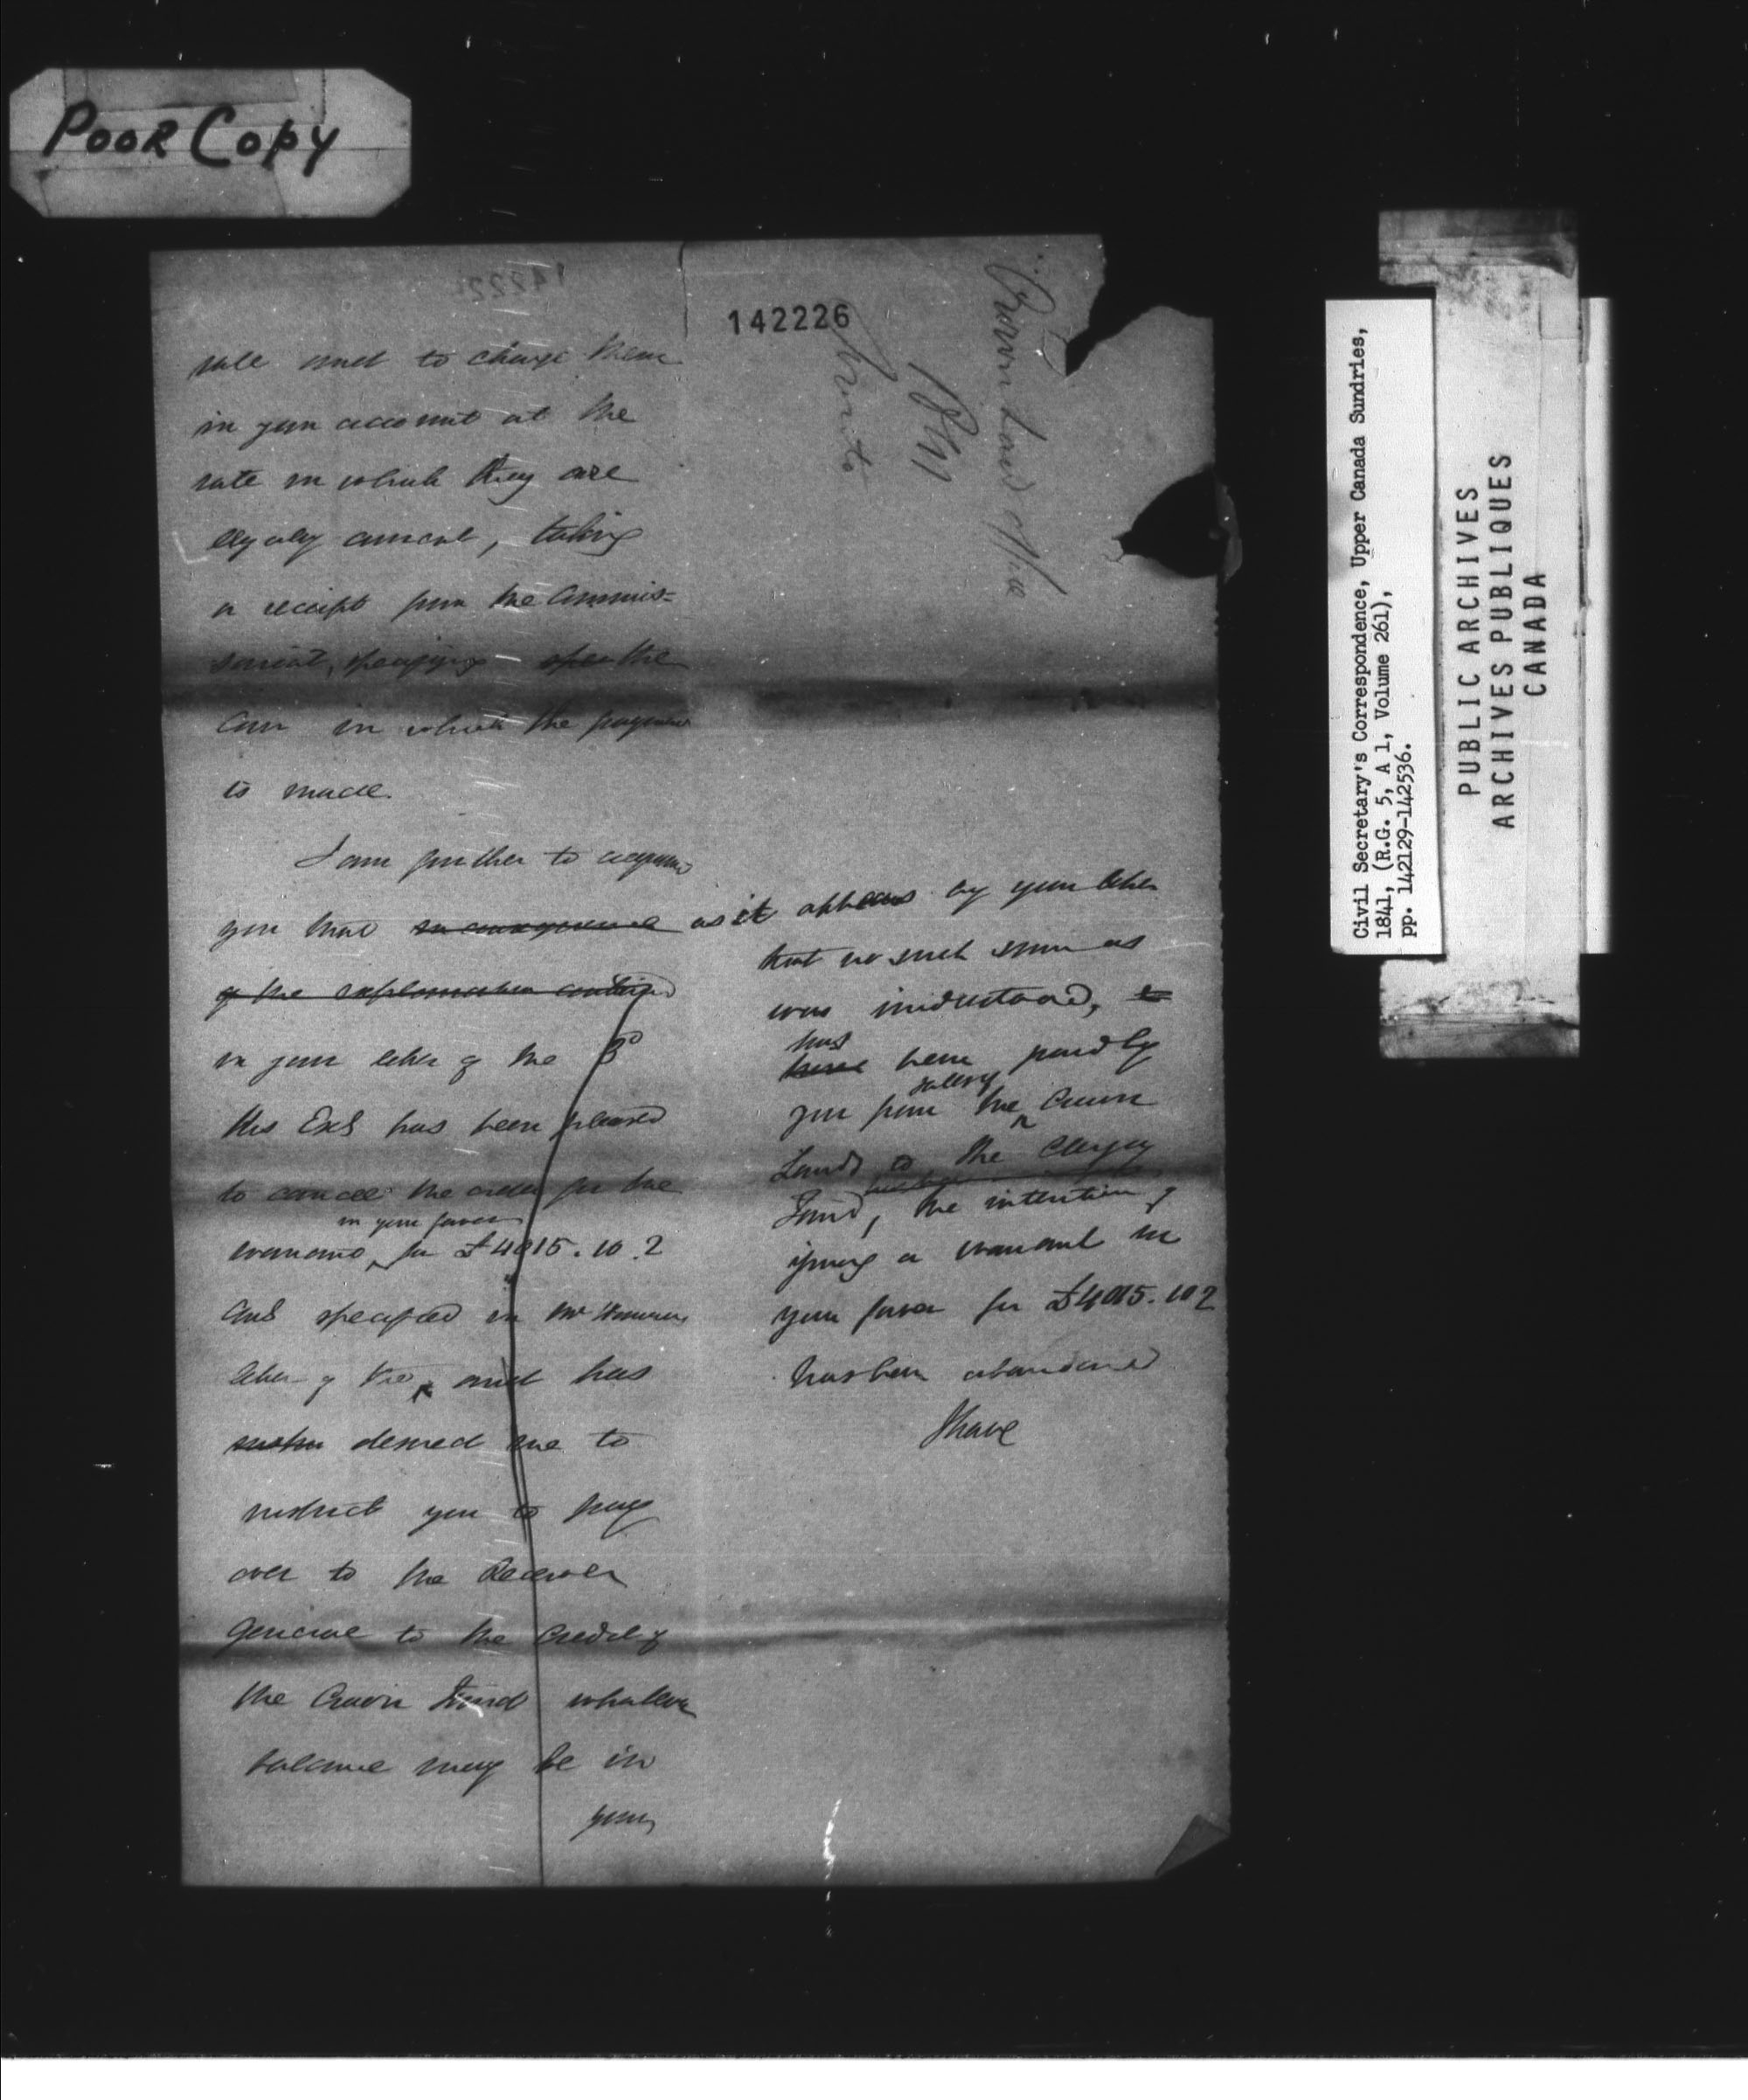 POOR COPY
142226
and to charge them
in your account at the
rate in which they are
legally current, taking
a receipt from the Commis=
sariat, specifying
Coin in which the payment
is made.
I am further to acquaint
you that in consequence
of the explanation contained
in your letter of the 3d
His Exc has been pleased
to cancel the order for the
in your favor
warrant, for £4015.10.2
and specified in Mr
letter of the and has
desired me to
instruct you to pay
over to the Receiver
General to the Credit of
the Crown Fund whatever
balance may be in
your
as it appears by your letter
that no such sum as
was understood,
has
have been paid by
you from the Crown
Lands to the Clergy
Fund, the intention of
issuing a warrant in
your favor for £4015.10 2
has been abandoned
I have
Crown Lands Office
Toronto
Civil Secretary's Correspondence, Upper Canada Sundries,
1841, (R.G. 5, A 1, Volume 261),
pp. 142129-142536.
PUBLIC ARCHIVES
ARCHIVES PUBLIQUES
CANADA